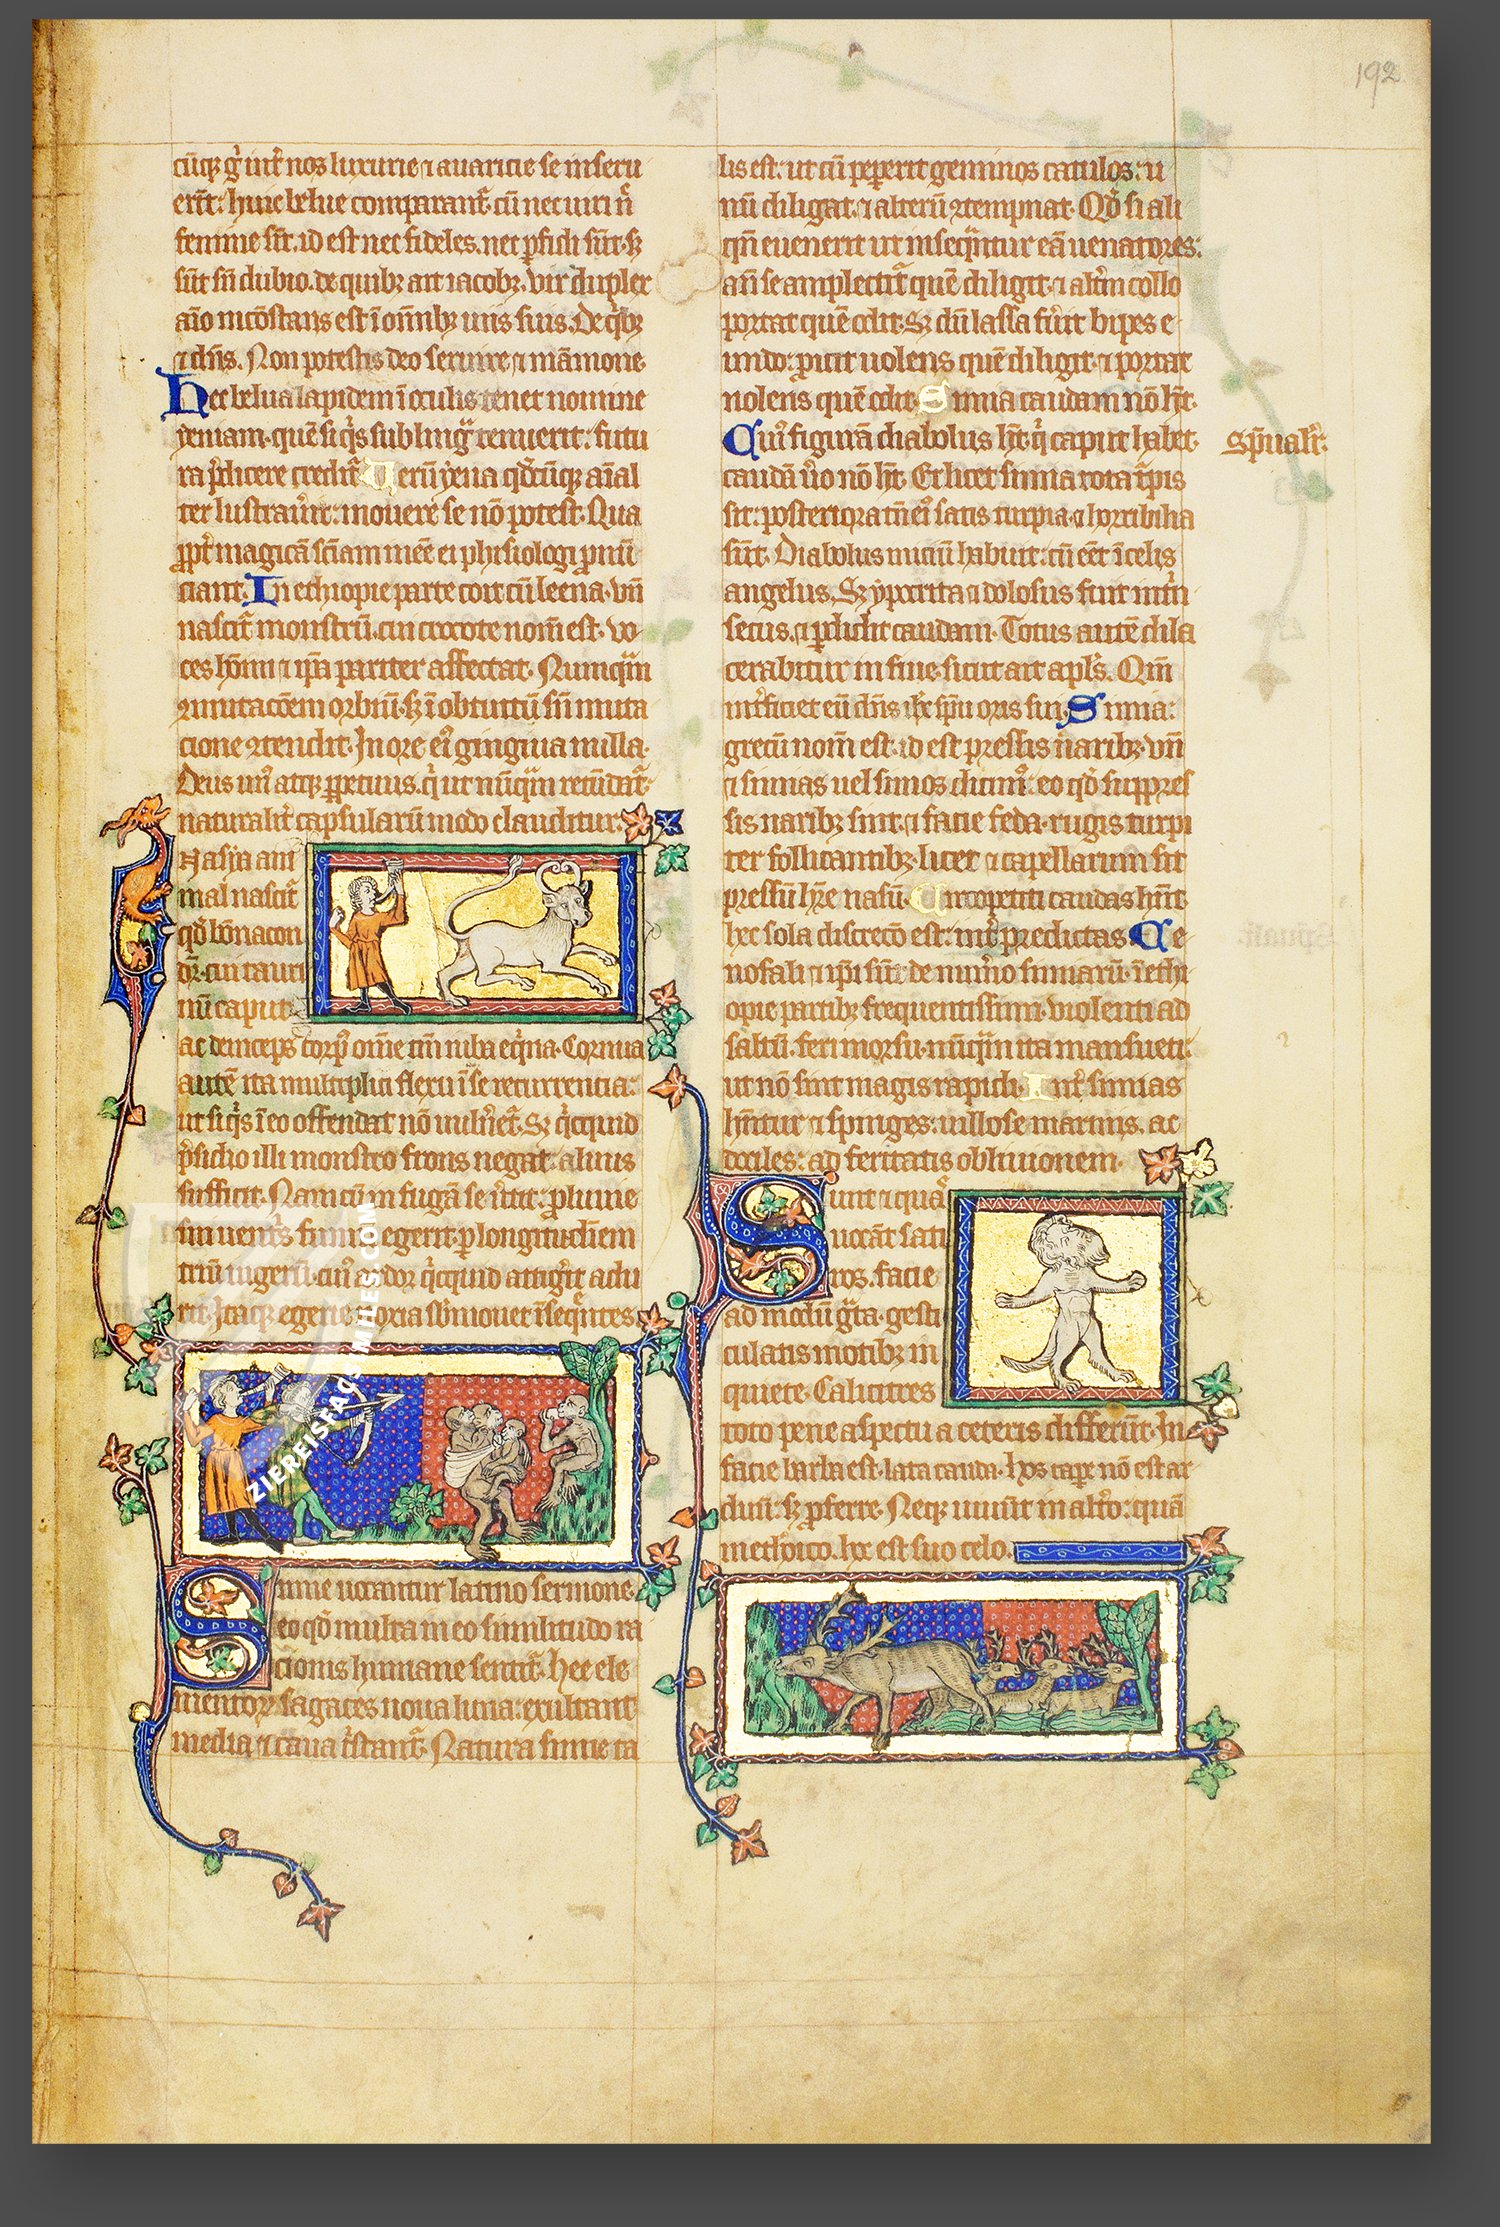 192
cūqꝫ g̾ int̾ nos luxurie ⁊ auaricie se inseru
erīt: huic belue comparant̾ cū nec uiri n̄
femine sīt. id est nec fideles. nec ꝑfidi sūt. sꝫ
sūt sn̄ dubio. de quibꝫ ait iacobꝫ. vir duplex
aīo incōstans est ī oīnibꝫ uiis suis. De qͥbꝫ
⁊ dn̄s. Non potestis deo seruire ⁊ māmone.
Hec belua lapidem ī oculis tenet nomine
yeniam. quē si qͥs sub ling̾ tenuerit: futu
ra p̾dicere credit̾. Verū yena qd̾cūqꝫ aīal
ter lustrau̾it: mouere se nō potest. Qua
ꝓpt̾ magicā sciam inēē ei phisiologi ꝓnū
ciant. In ethiopie parte coit cū leena. vn̄
nascit̾ monstrū. cui crocote nom̄ est. vo
ces hōinū ⁊ ip̄a pariter affectat. Numqͣm
ꝯmutacōem orbiū. sꝫ ī obtuitū sn̄ muta
cione ꝯtendit. In ore ei̾ gingiua nulla.
Deus un̾ atqꝫ ꝑpetuus. qͥ ut nūqͣm retūdat̾
naturalit̾ capsularū modo clauditur.
In asya ani
mal nascit̾
qd̾ bōnacon
dr̄. cui tauri
nū caput:
ac deinceps corp̾ om̄e tm̄ iuba eqͥna. Cornua
autē ita multiplici flexu ī se recurrencia:
ut si qͥs ī eo offendat nō uuln̾et̾. Sꝫ qͥcquid
p̾sidio illi monstro frons negat: aluus
sufficit. Nam cū in fugā se u̾tit: ꝓluuie
fumi egerit. ꝑ longitudinem
triū iugerū. cui̾ ardor qͥcquid attig̾it adu
rit. Itaqꝫ egerie noxia sb̄mouet īseqͣntes.
Simie uocantur latino sermone.
eo qd̾ multa in eo similitudo ra
cionis humane sentit̾. Hee ele
mentoꝝ sagaces noua luna: exultant
media ⁊ caua t̾stant̾. Natura simie ta
lis est: ut cū peperit geminos catulos: u
nū diligat. ⁊ alterū ꝯtempnat. Qd̾ si ali
qn̄ euenerit ut inseqͣntur eā uenatores:
an̄ se amplectit̾ quē diligit. ⁊ alt̾m collo
portat quē odit. Sꝫ dū lassa fu̾it bipes e
undo: ꝓicit uolens quē diligit. ⁊ portat
nolens quē odit. Simia caudam nō ht̄.
Cui̾ figurā diabolus ht̄. qͥ caput habet.
caudā u̾o nō ht̄. Et licet simia tota t̾pis
sit: posteriora tn̄ ei̾ satis turpia ⁊ horribilia
sūt. Diabolus iniciū habuit: cū eēt ī celis
angelus. Sꝫ ypocrita ⁊ dolosus fuit int̾n
secus. ⁊ ꝑdidit caudam. Totus autē dila
cerabitur in fine. sicut ait apl̄s. Qm̄
int̾ficiet eū dn̄s ihc̄ sp̄u oris sui. Simia:
grecū nom̄ est. id est pressis naribꝫ. vn̄
⁊ simias uel simos dicim̾. eo qd̾ suppres
sis naribꝫ sint. ⁊ facie feda. rugis turpi
ter follicantibꝫ. licet ⁊ capellarum sit
pressū hr̄e nasū. Circopetici caudas hn̄t.
hec sola discrecō est: int̾ predictas. Ce
nofali ⁊ ip̄i sūt de num̾o simiarū. ī ethi
opie partibꝫ frequentissimi. violenti ad
saltū. feri morsu. nūqͣm ita mansueti:
ut nō sint magis rapidi. Int̾ simias
hn̄tur ⁊ spinges. uillose mammis. ac
dociles: ad feritatis obliuionem.
Sunt ⁊ quas
uocāt sati
ros. facie
ad modū g̾ta. gesti
culatis motibꝫ in
quiete. Calicitres
toto pene aspectu a ceteris differūt. In
facie barba est. lata cauda. hos cape̾ nō est ar
duū: sꝫ ꝓferre. Neqꝫ uiuūt in alt̾o: quā
methoico. hoc est suo celo.
Sp̄ualr̄.
ZIEREISFACSIMILES.COM